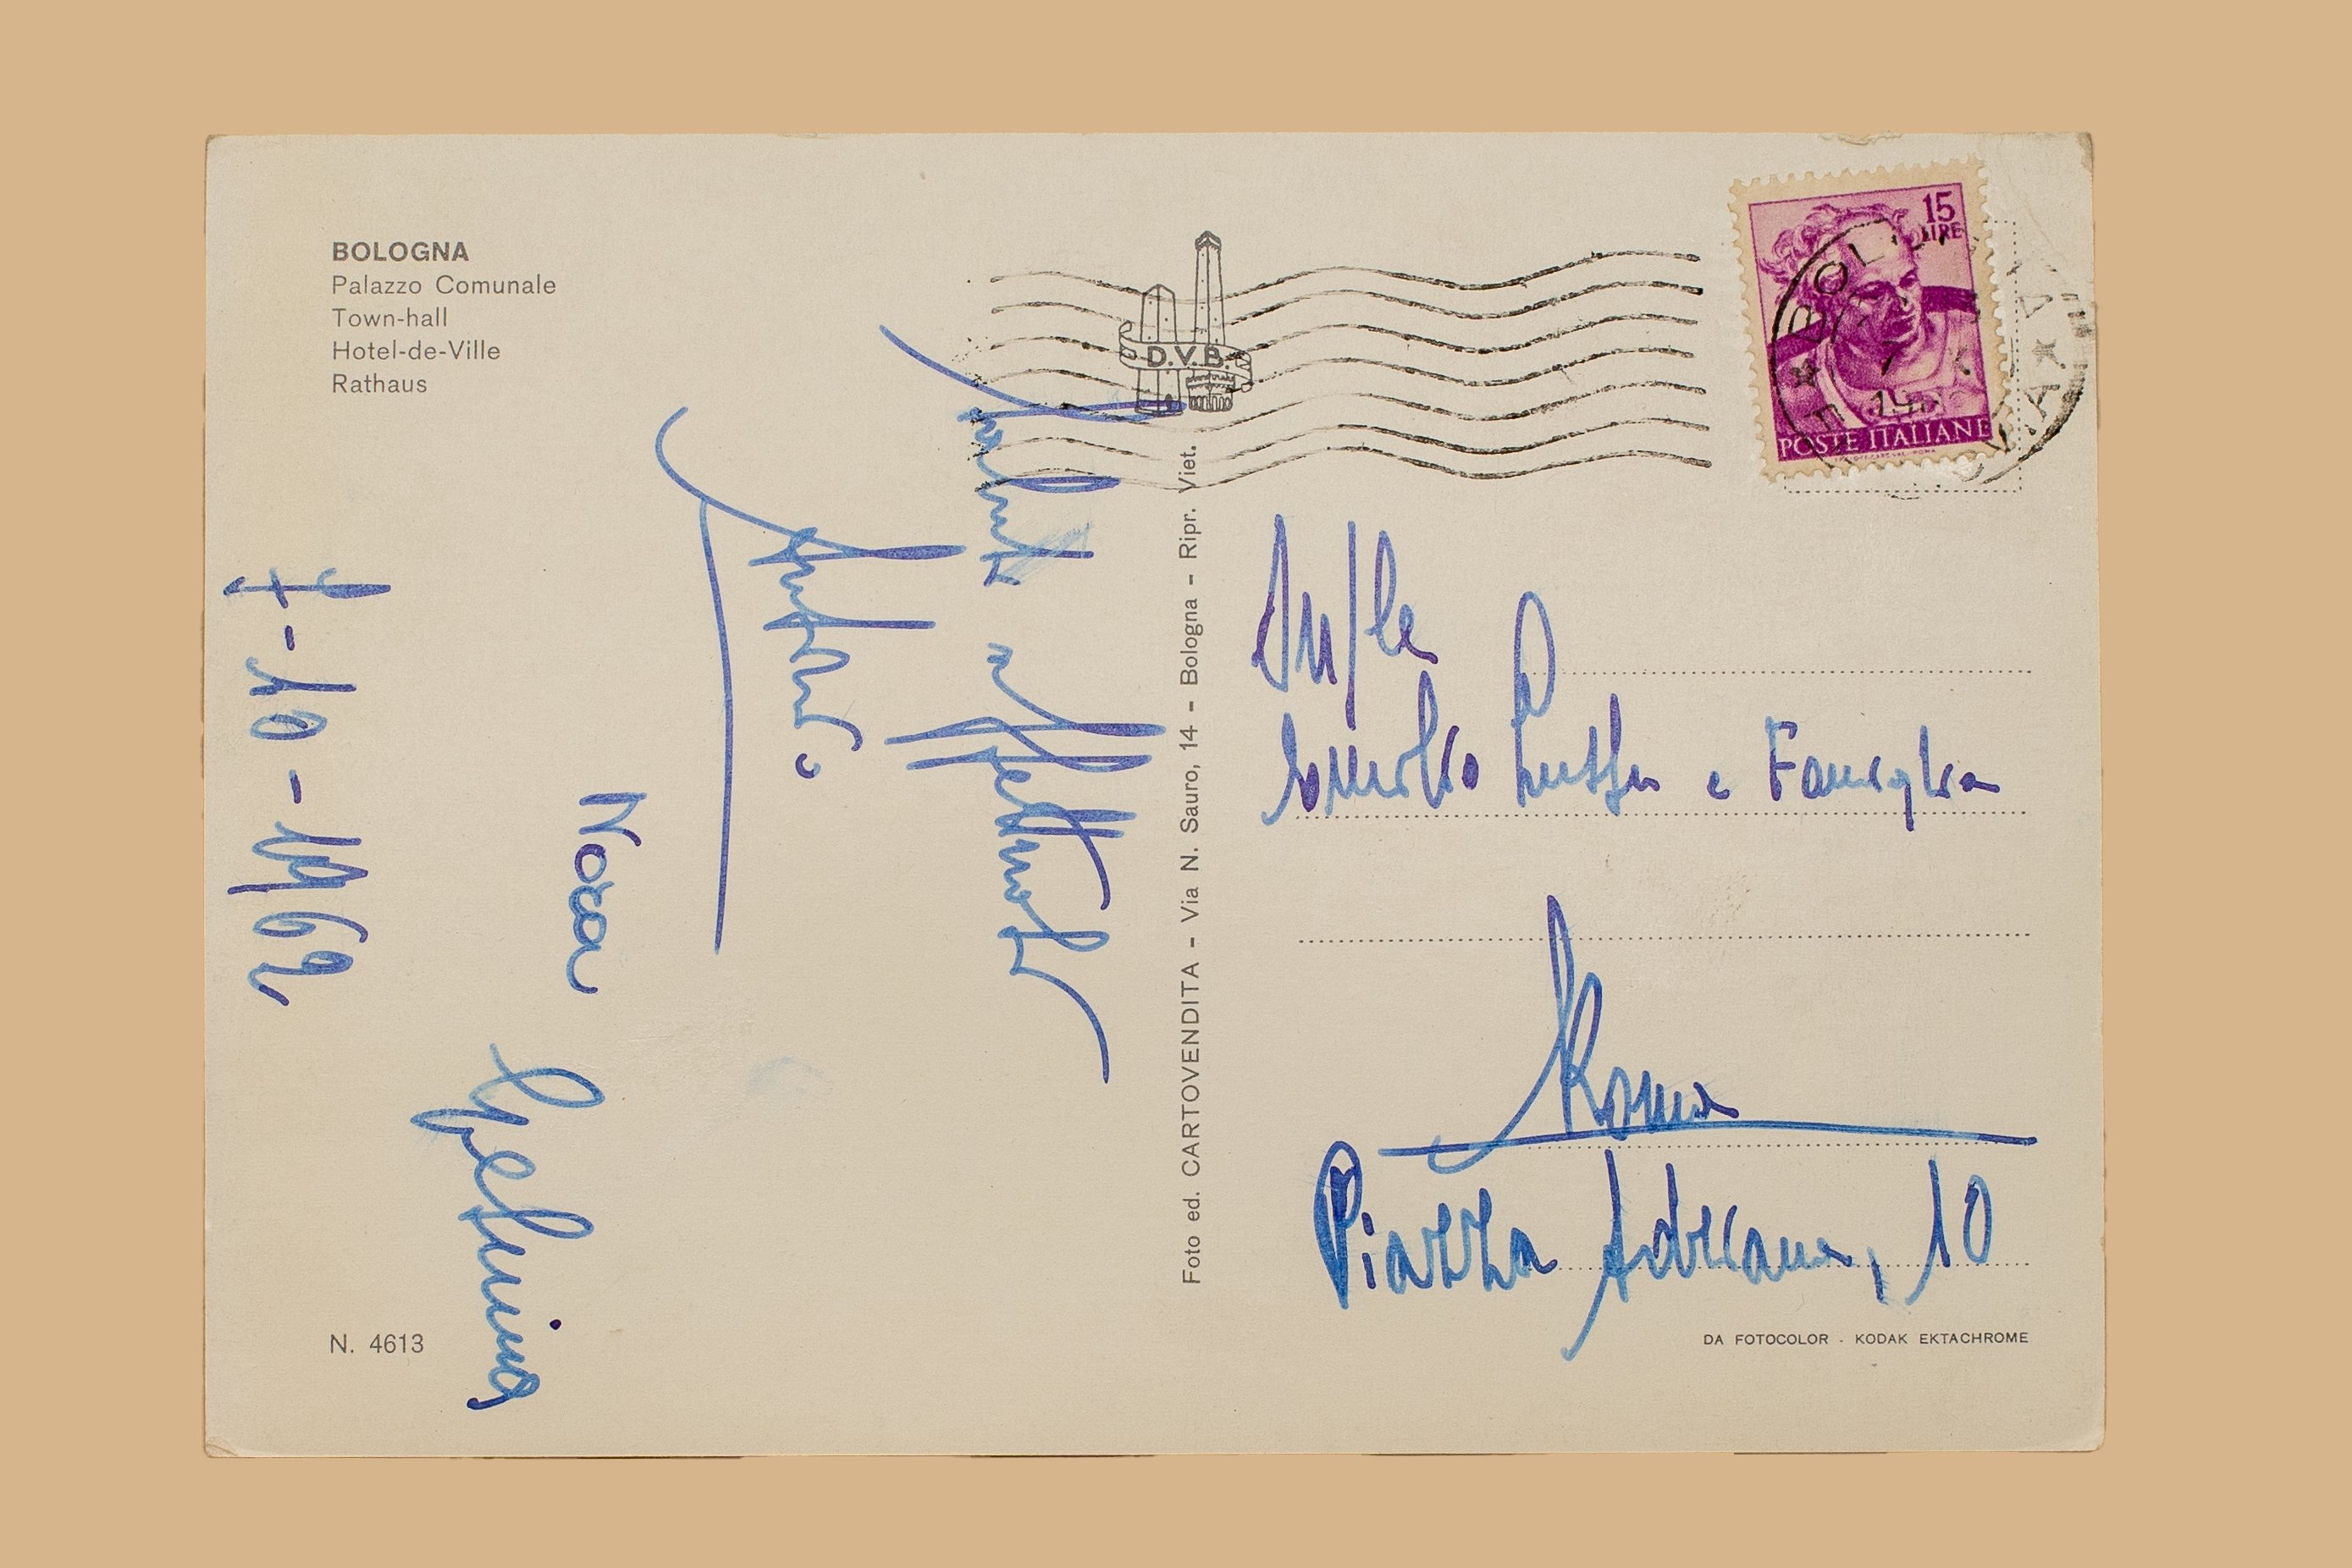 BOLOGNA
Palazzo Comunale
Town-hall
Hotel-de-Ville
Rathaus
N. 4613
Saluti e Affettuosità
Nora
7-10-1962
Foto ed. CARTOVENDITA - Via N. Sauro, 14 - Bologna - Ripr. Viet.
D.V.B.
15
LIRE
POSTE ITALIANE
e Famiglia
Roma
Piazza Adriana, 10
DA FOTOCOLOR - KODAK EKTACHROME